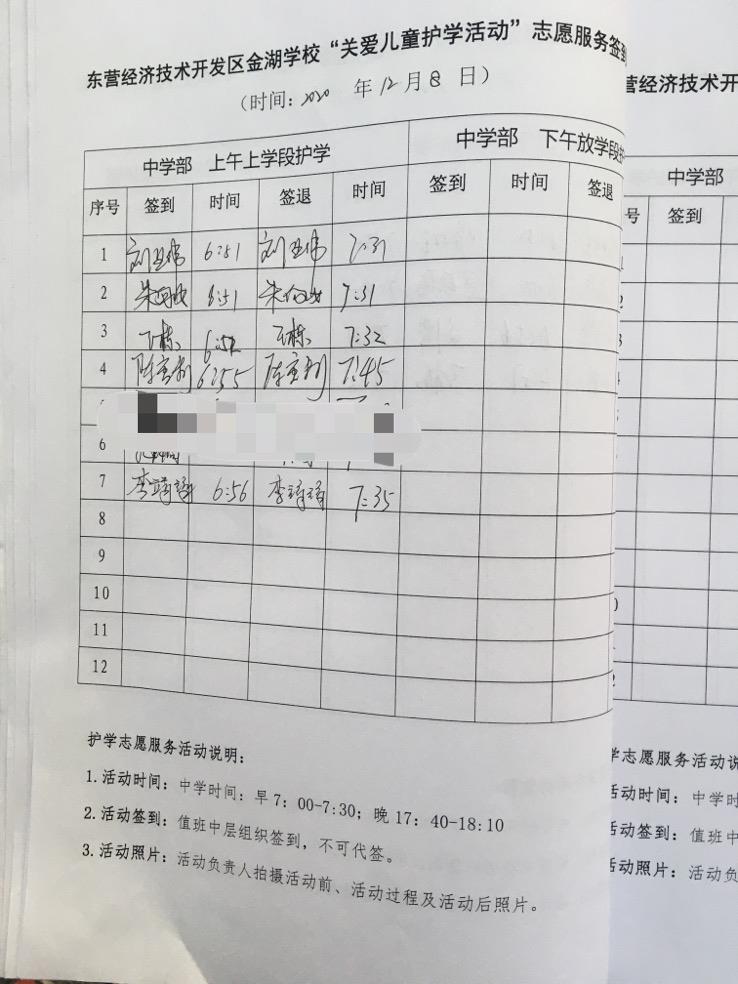 东营经济技术开发区金湖学校“关爱儿童护学活动”志愿服务签到
（时间：2020 年 12 月 8 日）
中学部 上午上学段护学 中学部 下午放学段护
序号 签到 时间 签退 时间 签到 时间 签退
1 6:51 7:31
2 6:51 7:31
3 6:52 7:32
4 6:55 7:45
6
7 6:56 7:35
8
9
10
11
12
护学志愿服务活动说明：
1.活动时间：中学时间：早7：00-7:30；晚17：40-18:10
2.活动签到：值班中层组织签到，不可代签。
3.活动照片：活动负责人拍摄活动前、活动过程及活动后照片。
营经济技术开
中学部
号 签到
学志愿服务活动说
活动时间：中学时
活动签到：值班中
活动照片：活动负